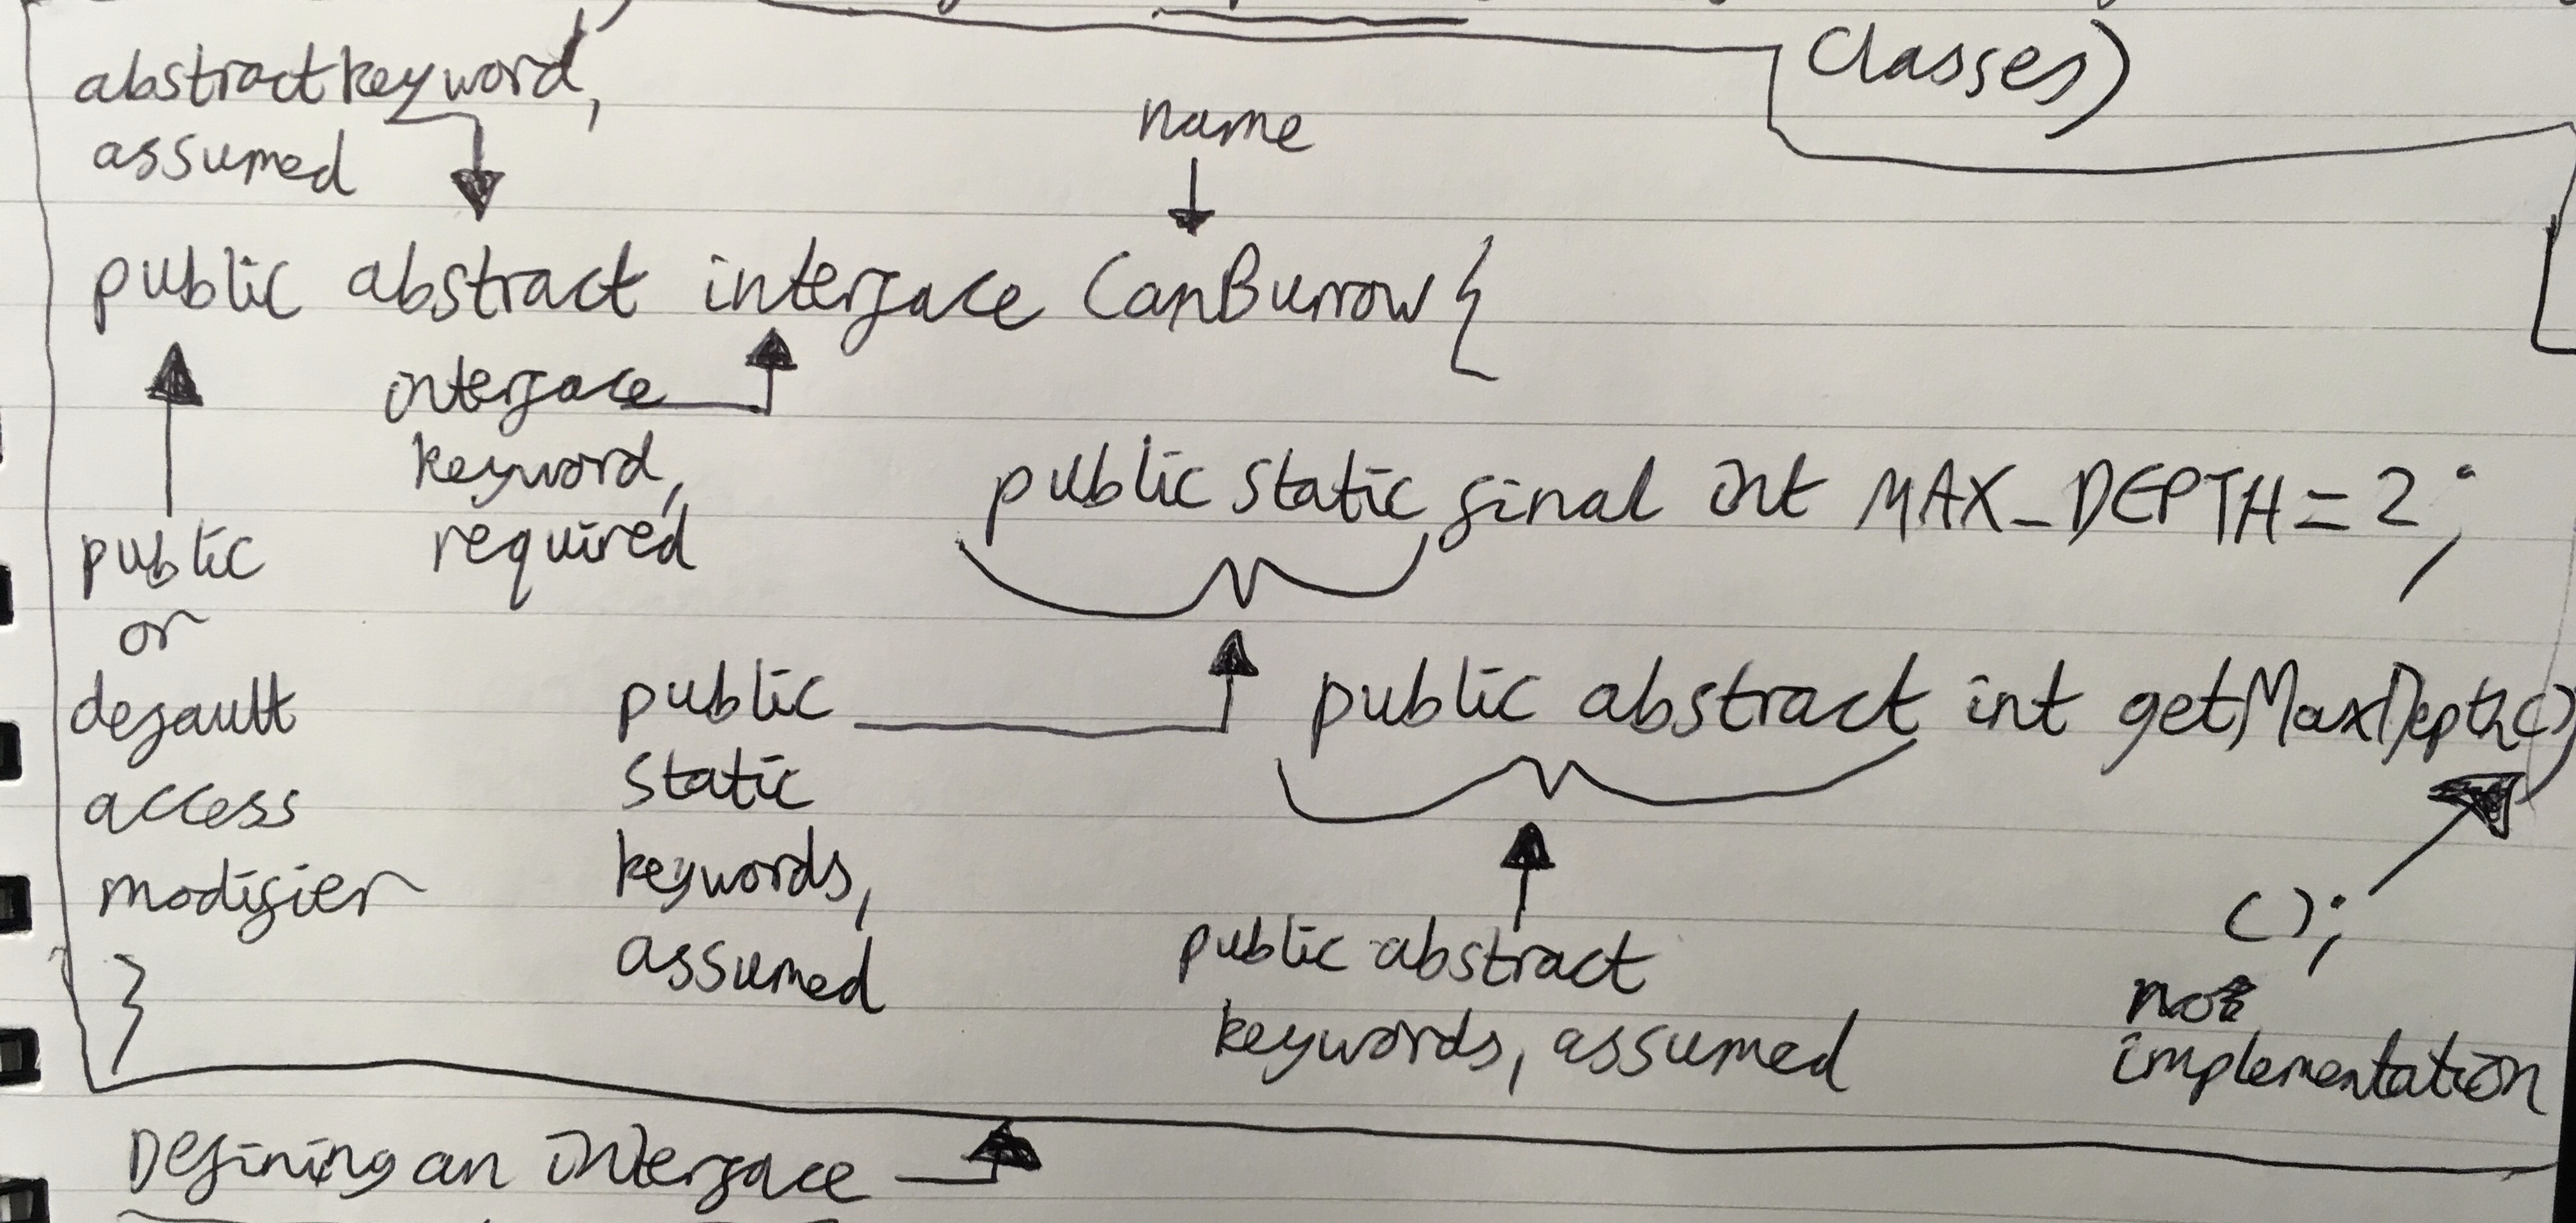 Classes)
abstract keyword,
assumed
name
public abstract interface CanBurrow {
interface
keyword,
required
public
or
default
access
modifier
public static final int MAX_DEPTH = 2;
public
static
keywords,
assumed
public abstract int getMaxDepth()
public abstract
keywords, assumed
();
not
implementation
}
Defining an interface